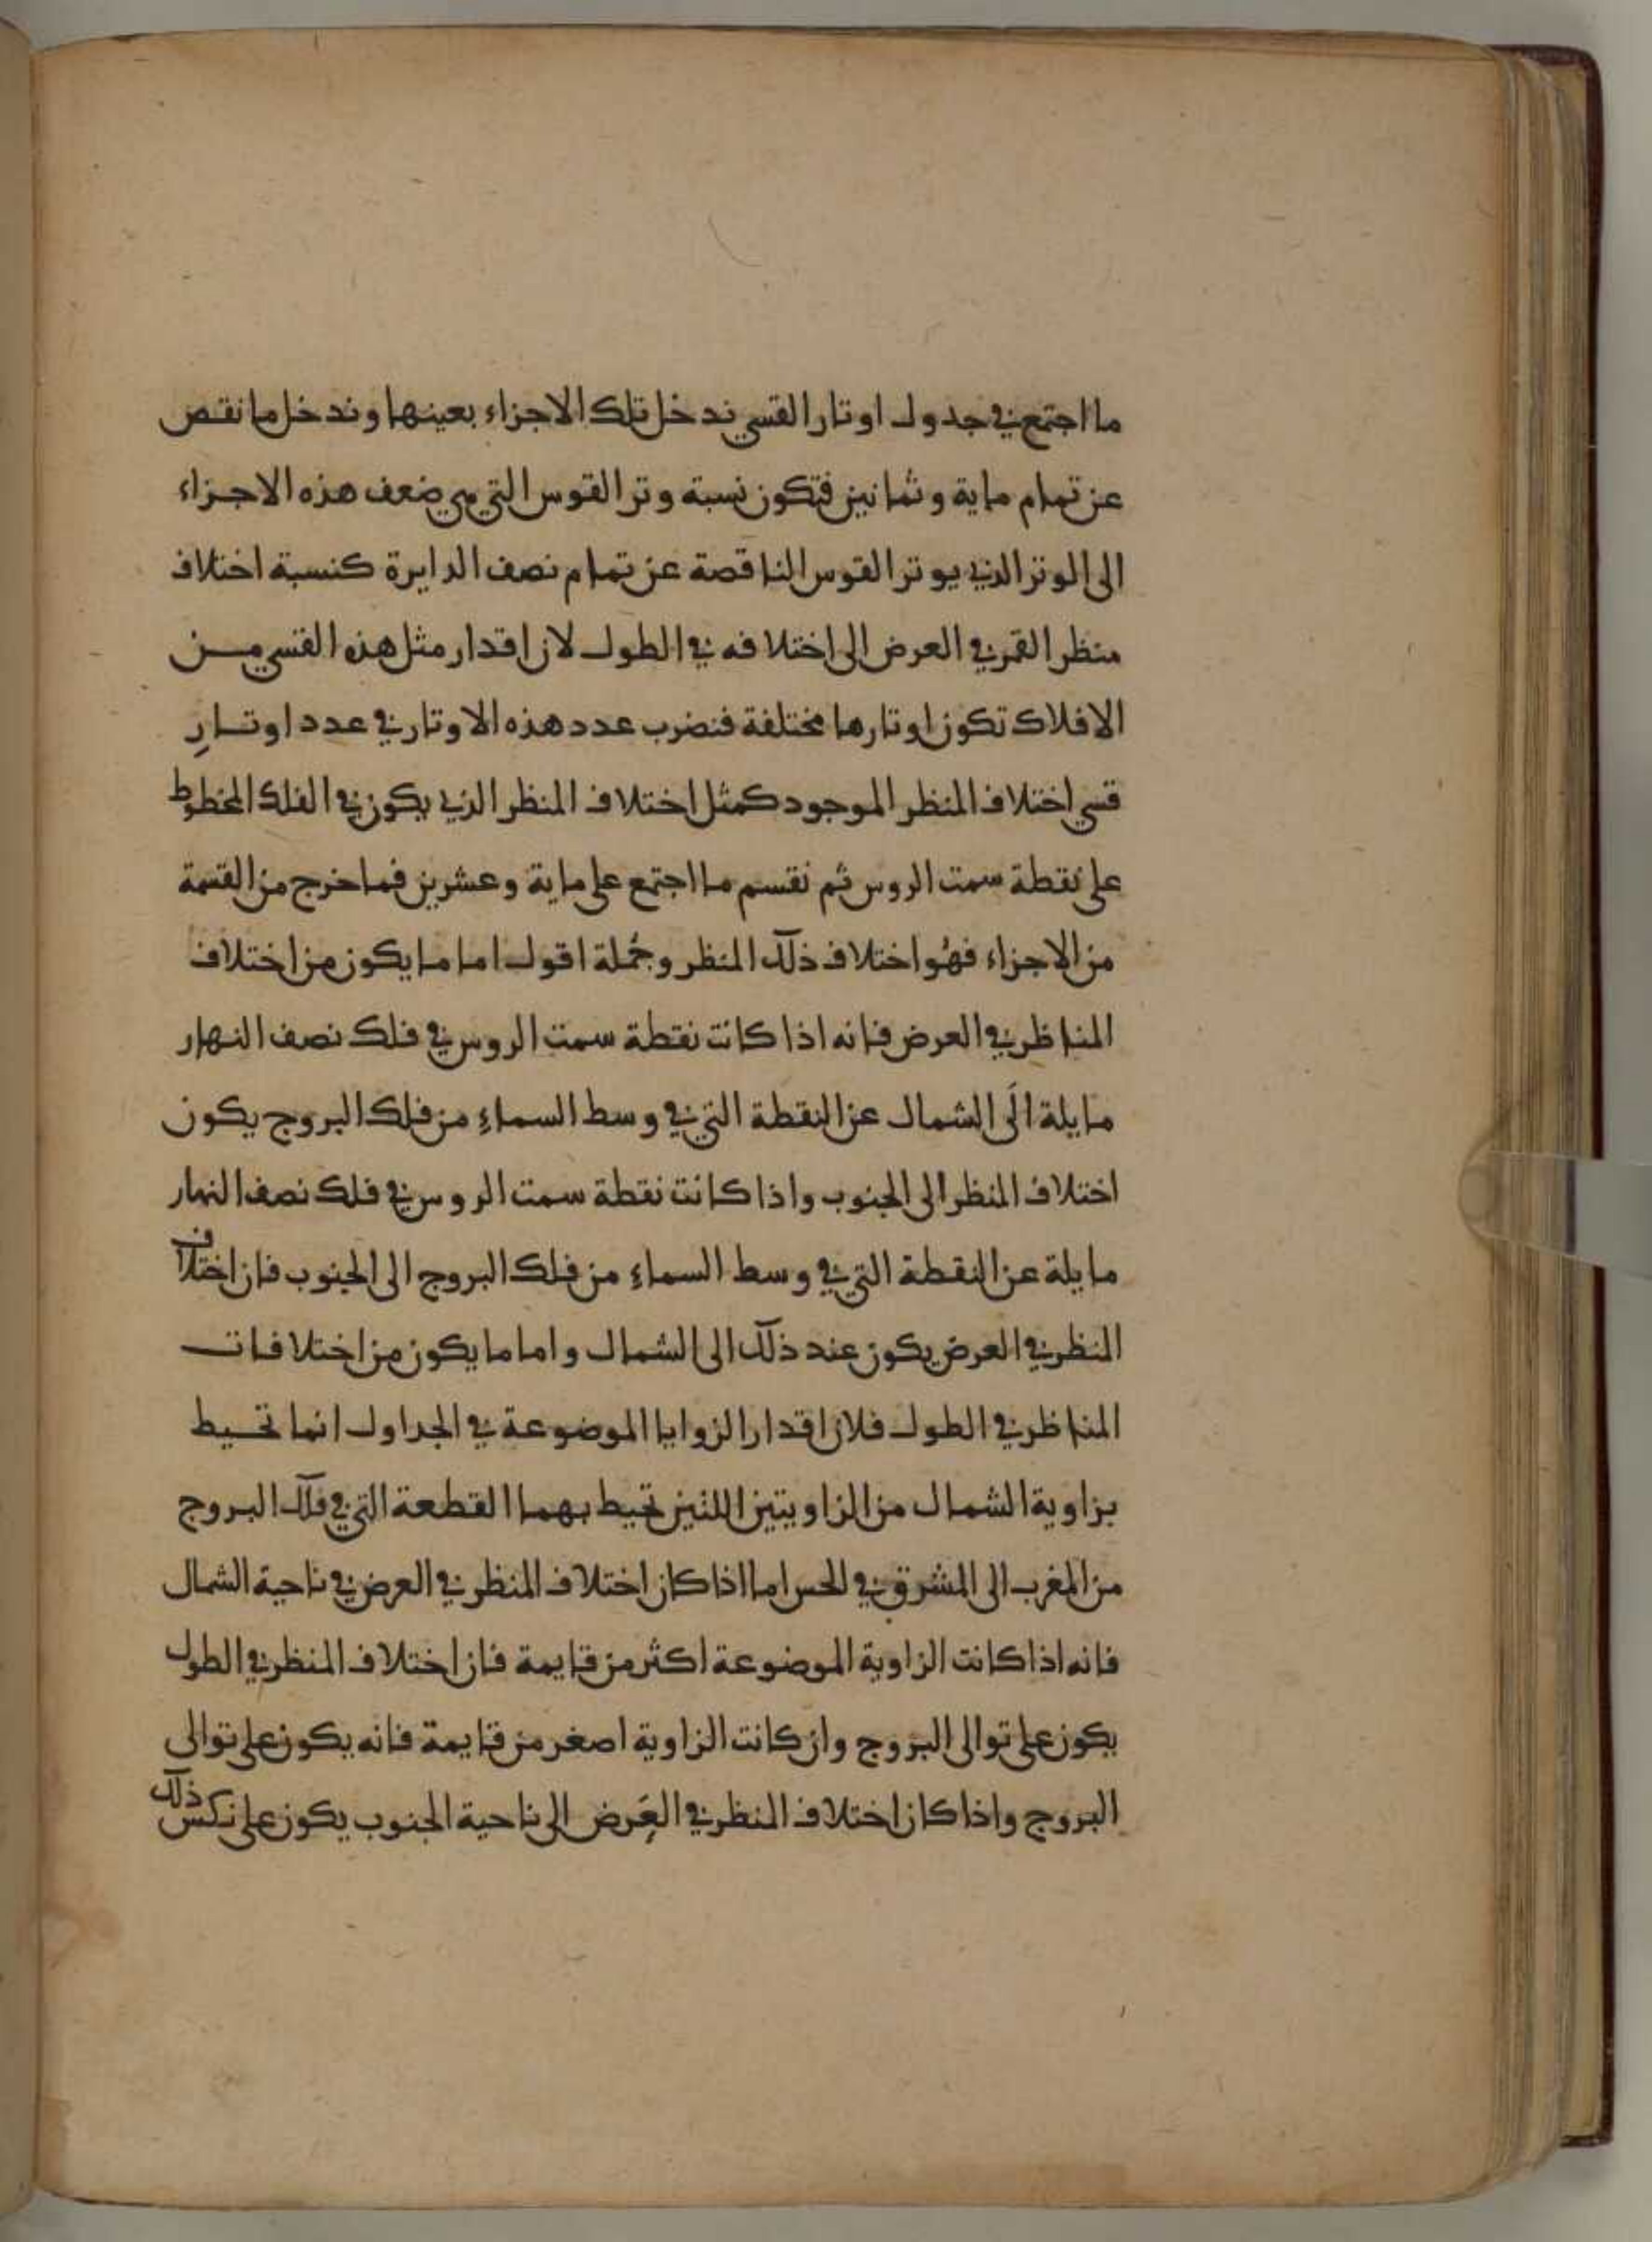 ما اجتمع في جدول اوتار القسي ندخل تلك الاجزاء بعينها وندخل ما نقص
عن تمام ماية وثمانين فتكون نسبة وتر القوس التي هي ضعف هذه الاجزاء
الى الوتر الذي يوتر القوس الناقصة عن تمام نصف الدايرة كنسبة اختلاف
منظر القمر في العرض الى اختلافه في الطول لان اقدار مثل هذه القسي من
الافلاك تكون اوتارها مختلفة فنضرب عدد هذه الاوتار في عدد اوتارِ
قسي اختلاف المنظر الموجود كمثل اختلاف المنظر الذي يكون في الفلك المخطوط
على نقطة سمت الروس ثم نقسم ما اجتمع على ماية وعشرين فما خرج من القسمة
من الاجزاء فهُو اختلاف ذلك المنظر وجُملة اقول اما ما يكون من اختلاف
المناظر في العرض فانه اذا كانت نقطة سمت الروس في فلك نصف النهار
مايلة الَى الشمال عن النقطة التي في وسط السماءِ من فلك البروج يكون
اختلاف المنظر الى الجنوب واذا كانت نقطة سمت الروس في فلك نصف النهار
مايلة عن النقطة التي في وسط السماءِ من فلك البروج الى الجنوب فان اختلاف
المنظر في العرض يكون عند ذلك الى الشمال واما ما يكون من اختلافات
المناظر في الطول فلان اقدار الزوايا الموضوعة في الجداول انما تحيط
بزاوية الشمال من الزاويتين اللتين تحيط بهما القطعة التي في فلك البروج
من المغرب الى المشرق في الحس اما اذا كان اختلاف المنظر في العرض في ناحية الشمال
فانه اذا كانت الزاوية الموضوعة اكثر من قايمة فان اختلاف المنظر في الطول
يكون على توالى البروج وان كانت الزاوية اصغر من قايمة فانه يكون على توالى
البروج واذا كان اختلاف المنظر في العَرض الى ناحية الجنوب يكون على نكس ذلك